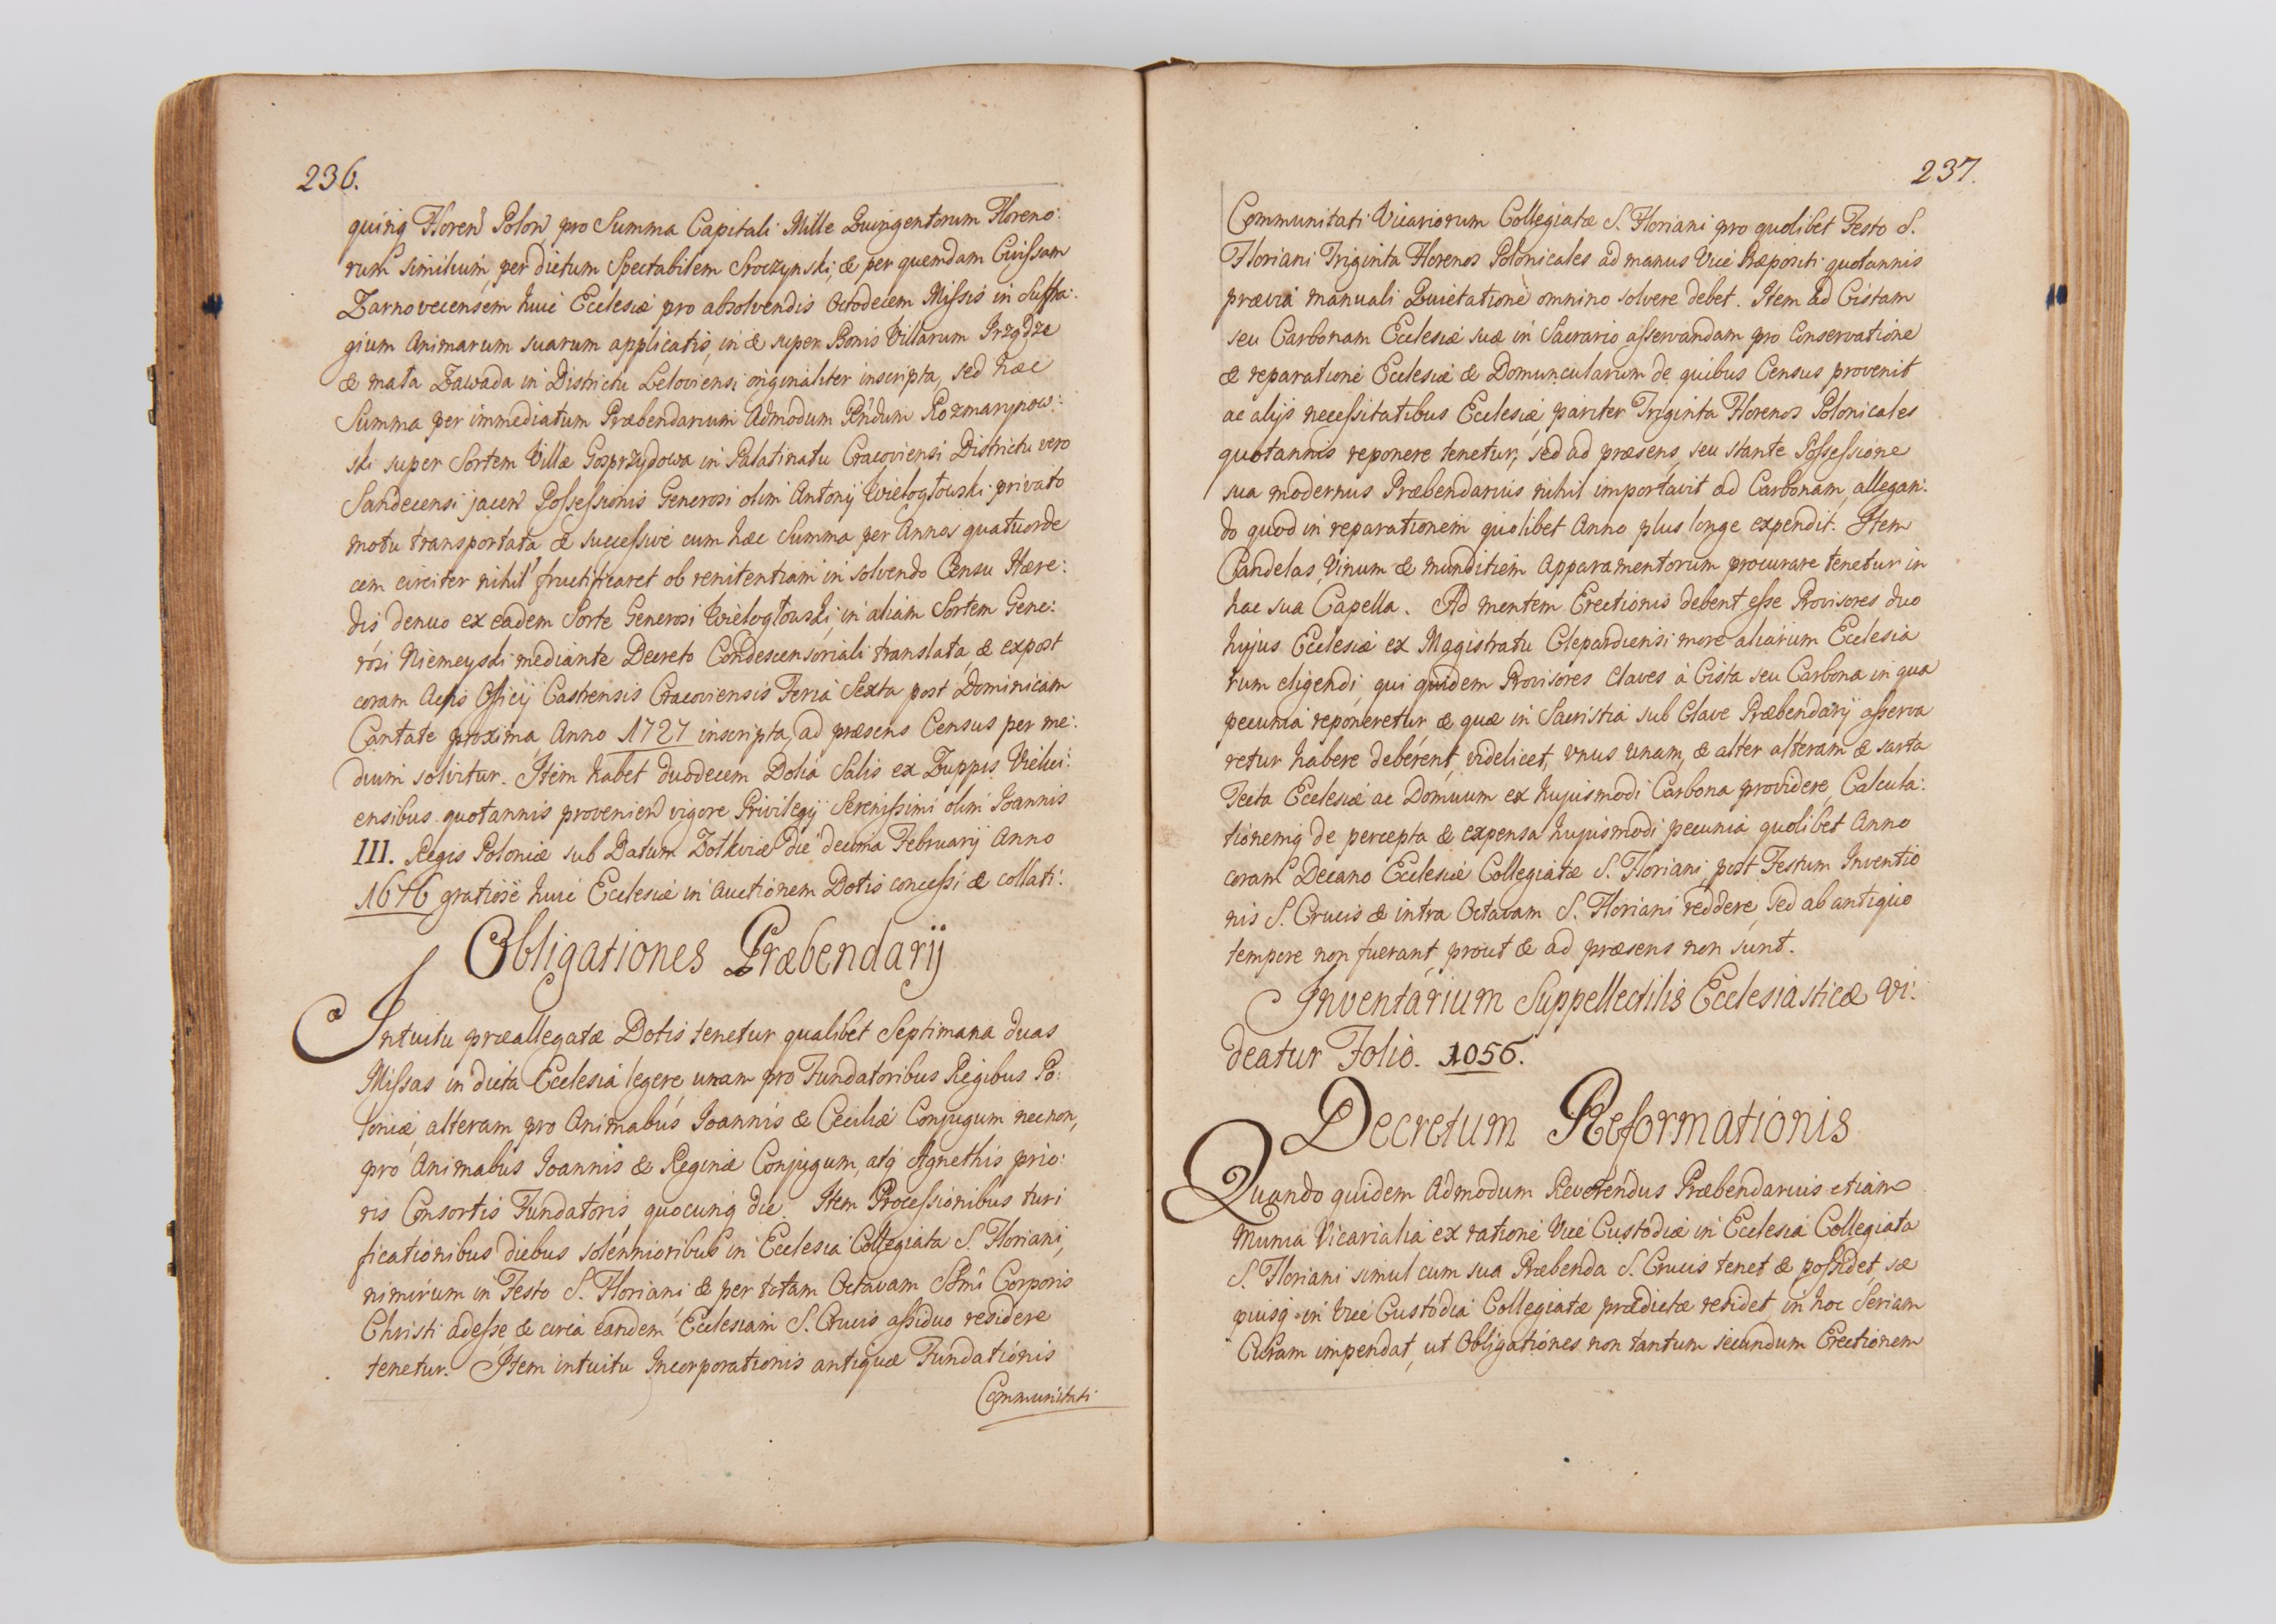 236.
quinq Floren Polon pro Summa Capitali Mille Quingentorum Floreno:
rum similium, per dictum Spectabilem Sroczynski, & per quemdam Civissam
Zarnovecensem huic Ecclesiæ pro absolvendis Octodecem Missis in Suffra:
gium Animarum suarum applicatis, in & super Bonis Villarum Irządze
& mała Zawada in Districtu Leloviensi originaliter inscripta, sed hæc
Summa per immediatum Præbendarium Admodum Rndum Rozmarynow:
ski super Sortem Villæ Gosprzydowa in Palatinatu Cracoviensi Districtu vero
Sandecensi jacen Possessionis Generosi olim Antonij Wielogłowski privato
motu transportata & successive cum hæc Summa per Annos quatuorde
cem circiter nihil fructificaret ob renitentiam in solvendo Censu Hære:
dis denuo ex eadem Sorte Generosi Wielogłowski, in aliam Sortem Gene:
rosi Niemeyski mediante Decreto Condescensoriali translata, & expost
coram Actis Officij Castrensis Cracoviensis Feria Sexta post Dominicam
Cantate proxima Anno 1727 inscripta, ad præsens Census per me:
dium solvitur. Item habet duodecem Dolia Salis ex Zuppis Vielici:
ensibus quotannis provenien vigore Privilegij Serenissimi olim Ioannis
III. Regis Poloniæ sub Datum Zołkviæ die decima Februarij Anno
1676 gratiose huic Ecclesiæ in Auctionem Dotis concessi & collati.
Obligationes Præbendarij
Intuitu præallegatæ Dotis tenetur qualibet Septimana duas
Missas in dicta Ecclesia legere unam pro Fundatoribus Regibus Po:
loniæ, alteram pro Animabus Ioannis & Ceciliæ Conjugum necnon,
pro Animabus Ioannis & Reginæ Conjugum, atq Agnethis prio:
ris Consortis Fundatoris, quocunq die. Item Processionibus turi
ficationibus diebus solennioribus in Ecclesia Collegiata S. Floriani,
nimirum in Festo S. Floriani & per totam Octavam SSmi Corporis
Christi adesse, & circa eandem Ecclesiam S. Crucis assiduo residere
tenetur. Item intuitu Incorporationis antiquæ Fundationis
Communitati
237.
Communitati Vicariorum Collegiatæ S. Floriani pro quolibet Festo S.
Floriani Triginta Florenos Polonicales ad manus Vice Præpositi quotannis
prævia manuali Quietatione omnino solvere debet. Item ad Cistam
seu Carbonam Ecclesiæ suæ in Sacrario asservandam pro Conservatione
& reparatione Ecclesiæ & Domuncularum de quibus Census provenit
ac alijs necessitatibus Ecclesiæ, pariter Triginta Florenos Polonicales
quotannis reponere tenetur, sed ad præsens, seu stante Possessione
sua modernus Præbendarius nihil importavit ad Carbonam, allegan:
do quod in reparationem quolibet Anno plus longe expendit. Item
Candelas, Vinum & munditiem Apparamentorum procurare tenetur in
hac sua Capella. Ad mentem Erectionis debent esse Provisores duo
hujus Ecclesiæ ex Magistratu Clepardiensi more aliarum Ecclesia
rum eligendi, qui quidem Provisores Claves à Cista seu Carbona in qua
pecunia reponeretur & quæ in Sacristia sub Clave Præbendarij asserva
retur habere deberent, videlicet, unus unam, & alter alteram & sarta
Tecta Ecclesiæ ac Domuum ex hujusmodi Carbona providere, Calcula:
tionemq de percepta & expensa hujusmodi pecunia quolibet Anno
coram Decano Ecclesiæ Collegiatæ S. Floriani, post Festum Inventio
nis S. Crucis & intra Octavam S. Floriani reddere, sed ab antiquo
tempore non fuerant, prout & ad præsens non sunt.
Inventarium Suppellectilis Ecclesiasticæ Vi:
deatur Folio. 1056.
Decretum Reformationis
Quando quidem Admodum Reverendus Præbendarius etiam
Munia Vicarialia ex ratione Vice Custodiæ in Ecclesia Collegiata
S. Floriani simul cum sua Præbenda S. Crucis tenet & possidet, sæ
piusq in Vice Custodia Collegiatæ prædictæ residet in hoc Seriam
Curam impendat, ut Obligationes non tantum secundum Erectionem